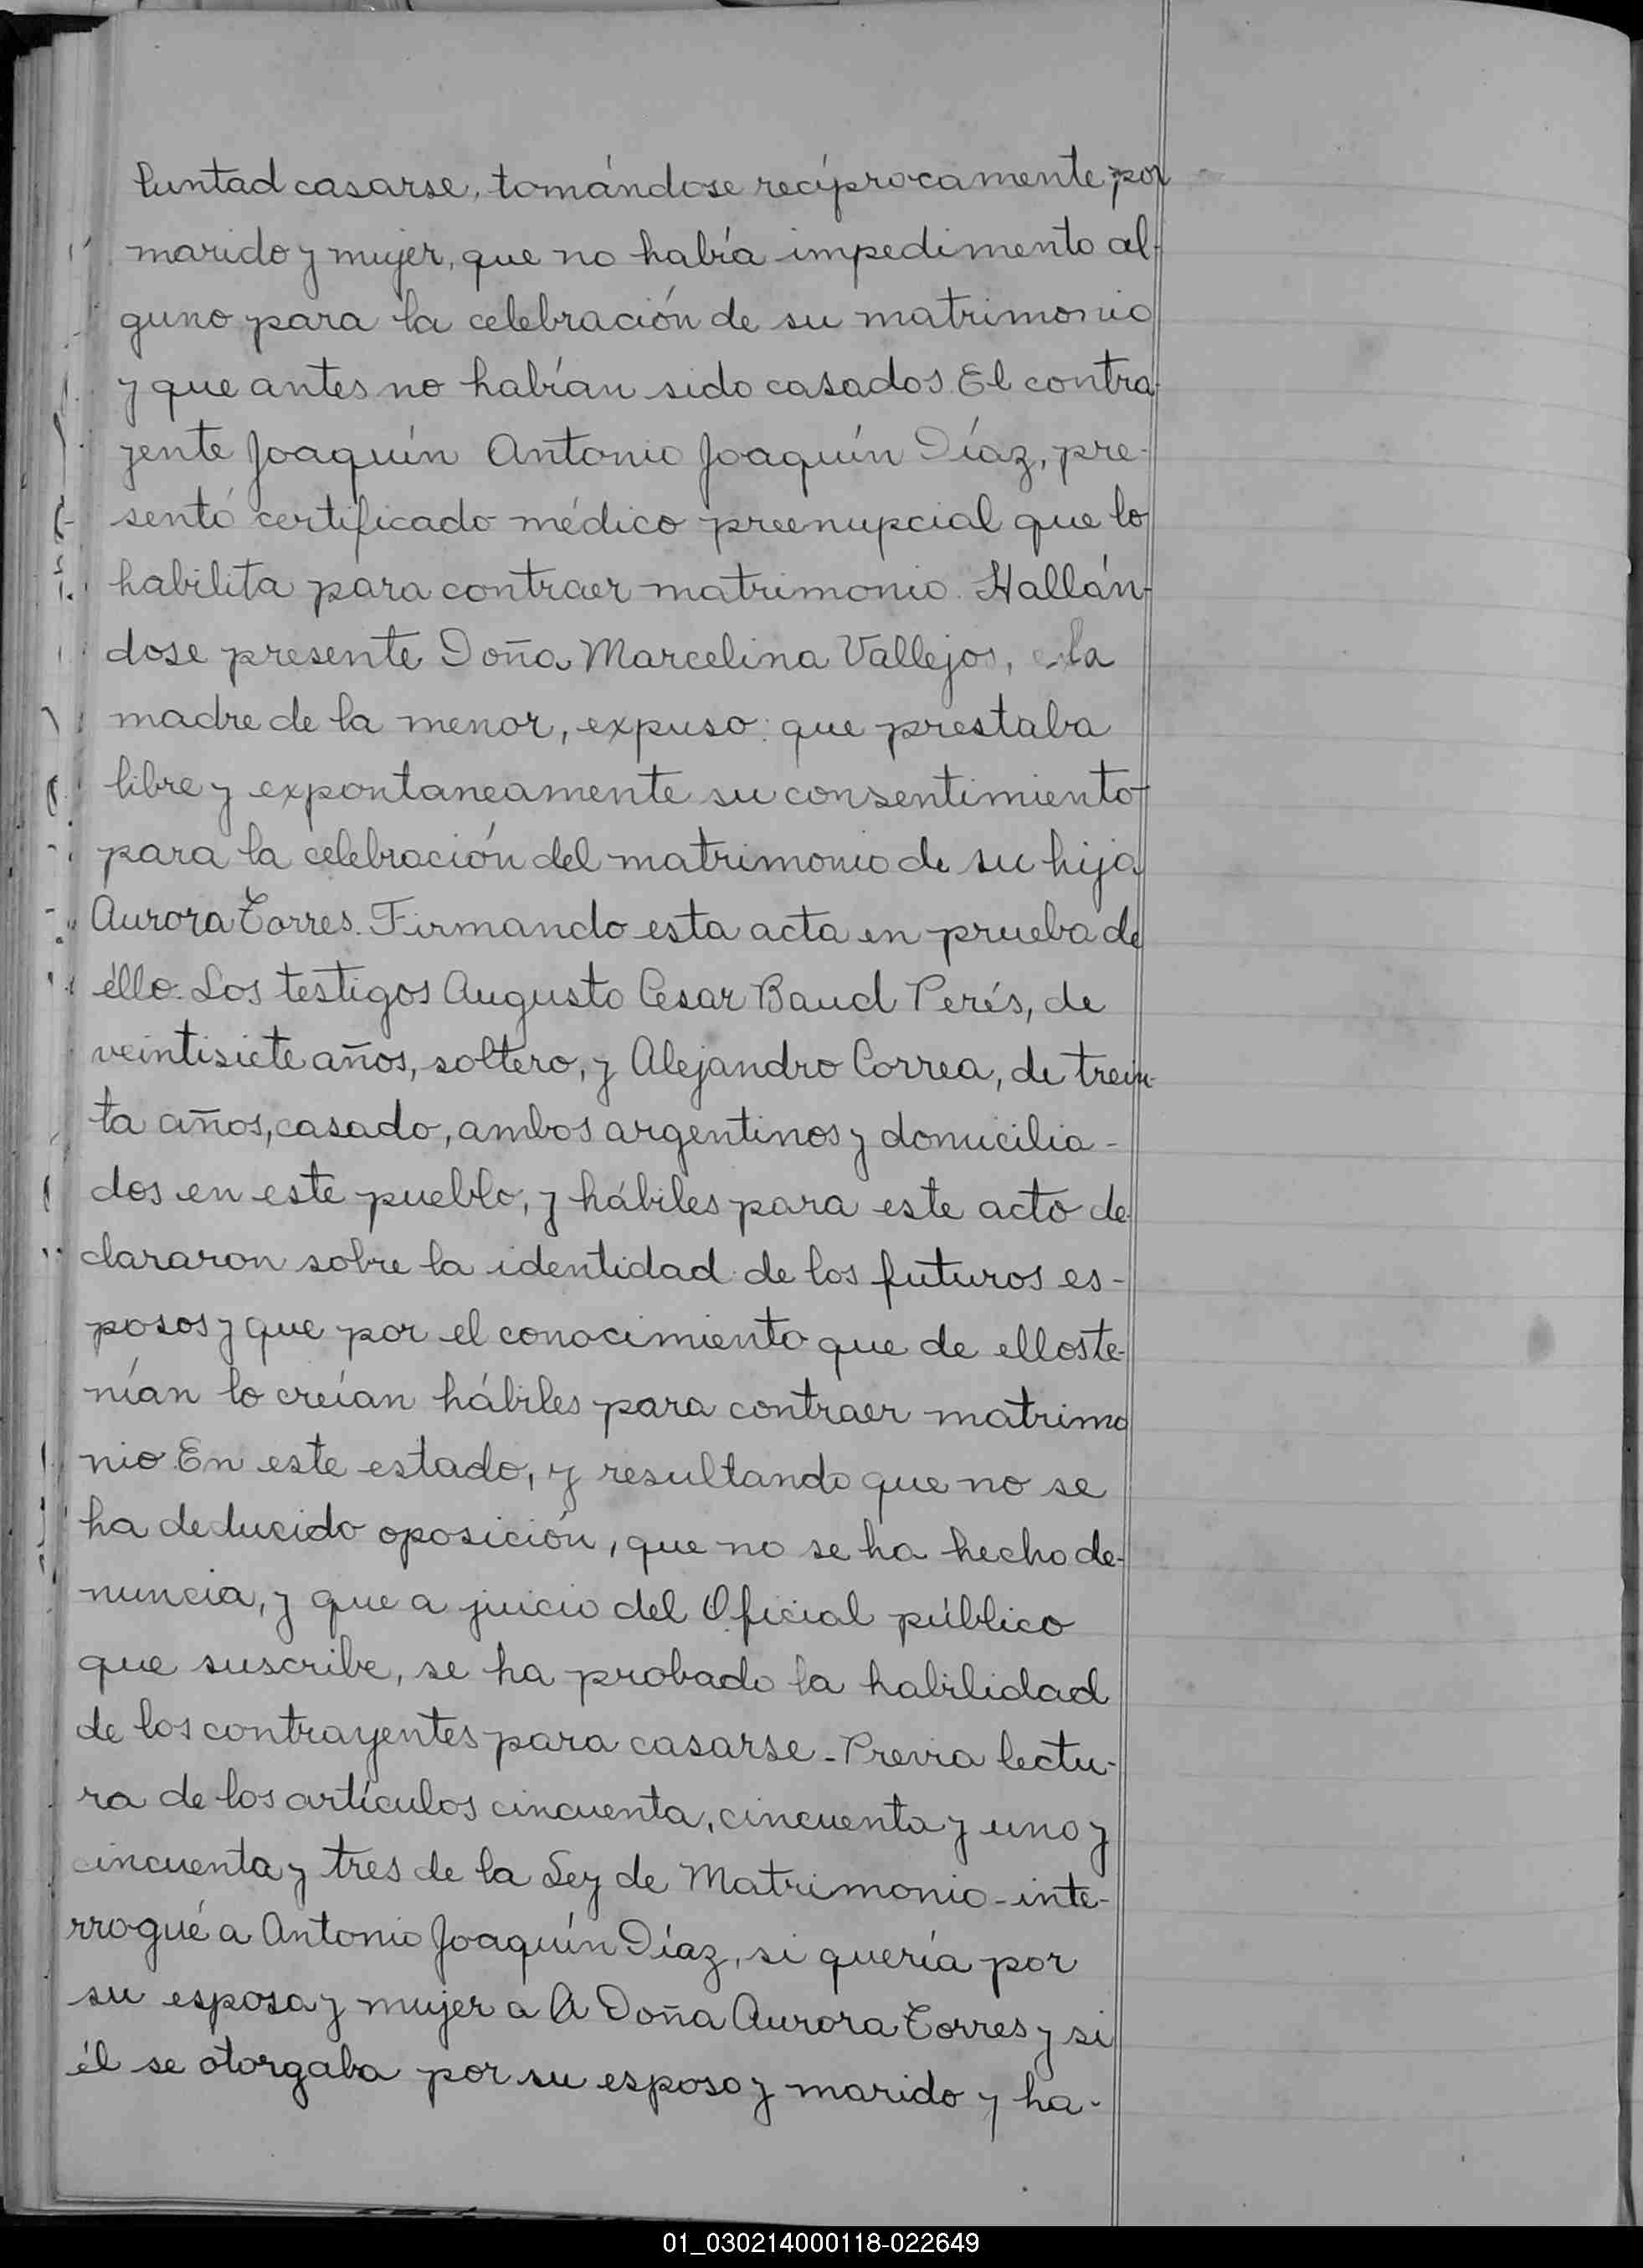 luntad casarse, tomándose recíprocamente por
marido y mujer, que no había impedimento al-
guno para la celebración de su matrimonio
y que antes no habían sido casados. El contra-
yente Joaquín Antonio Joaquín Díaz, pre-
sentó certificado médico preenupcial que lo
habilita para contraer matrimonio. Hallán-
dose presente Doña Marcelina Vallejos, la
madre de la menor, expuso: que prestaba
libre y expontaneamente su consentimiento
para la celebración del matrimonio de su hija
Aurora Torres. Firmando esta acta en prueba de
éllo. Los testigos Augusto Cesar Baud Perés, de
veintisiete años, soltero, y Alejandro Correa, de trein-
ta años, casado, ambos argentinos y domicilia-
dos en este pueblo, y hábiles para este acto de-
clararon sobre la identidad de los futuros es-
posos y que por el conocimiento que de ellos te-
nían lo creían hábiles para contraer matrimo
nio En este estado, y resultando que no se
ha deducido oposición, que no se ha hecho de-
nuncia, y que a juicio del Oficial público
que suscribe, se ha probado la habilidad
de los contrayentes para casarse - Previa lectu-
ra de los artículos cincuenta, cincuenta y uno y
cincuenta y tres de la Ley de Matrimonio - inte-
rrogué a Antonio Joaquín Díaz, si quería por
su esposa y mujer a A Doña Aurora Torres y si
él se otorgaba por su esposo y marido y ha-
01_030214000118-022649